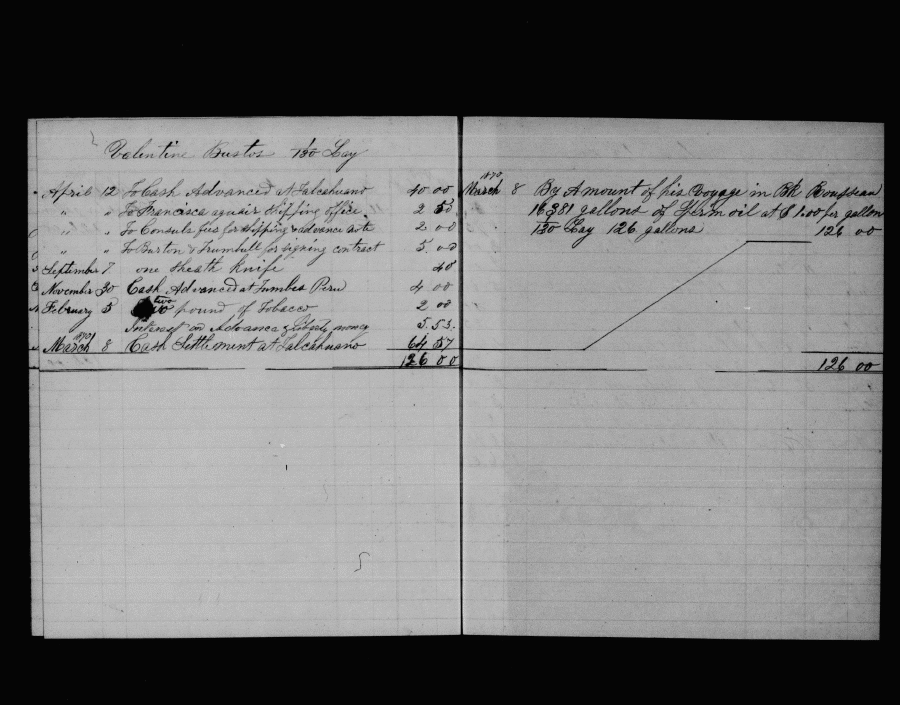 Valentine Bustos 1/130 Lay
April 12 To Cash Advanced at Talcahuano 40 00
" " To Francisca aguair Shipping office 2 50
" " To Consuls fees for Shipping & advance note 2 00
" " To Burton & Trumbull for signing contract 5.00
September 7 one Sheath Knife 40
November 30 Cash Advanced at Tumbes Peru 4 00
February 5 two pound of Tobacco 2 00
Interest on Advance & liberty money 5.53.
1870
March 8 Cash Settlement at Talcahuano 64 57
126 00
1870
March 8 By Amount of his Voyage in Bk Rousseau
16381 gallons of Sperm oil at $1.00 per gallon
1/130 Lay 126 gallons 126 00
126 00